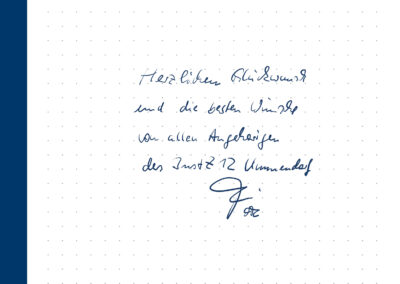 Herzlichen Glückwunsch
und die besten Wünsche
von allen Angehörigen
des InstZ 12 Ummendorf